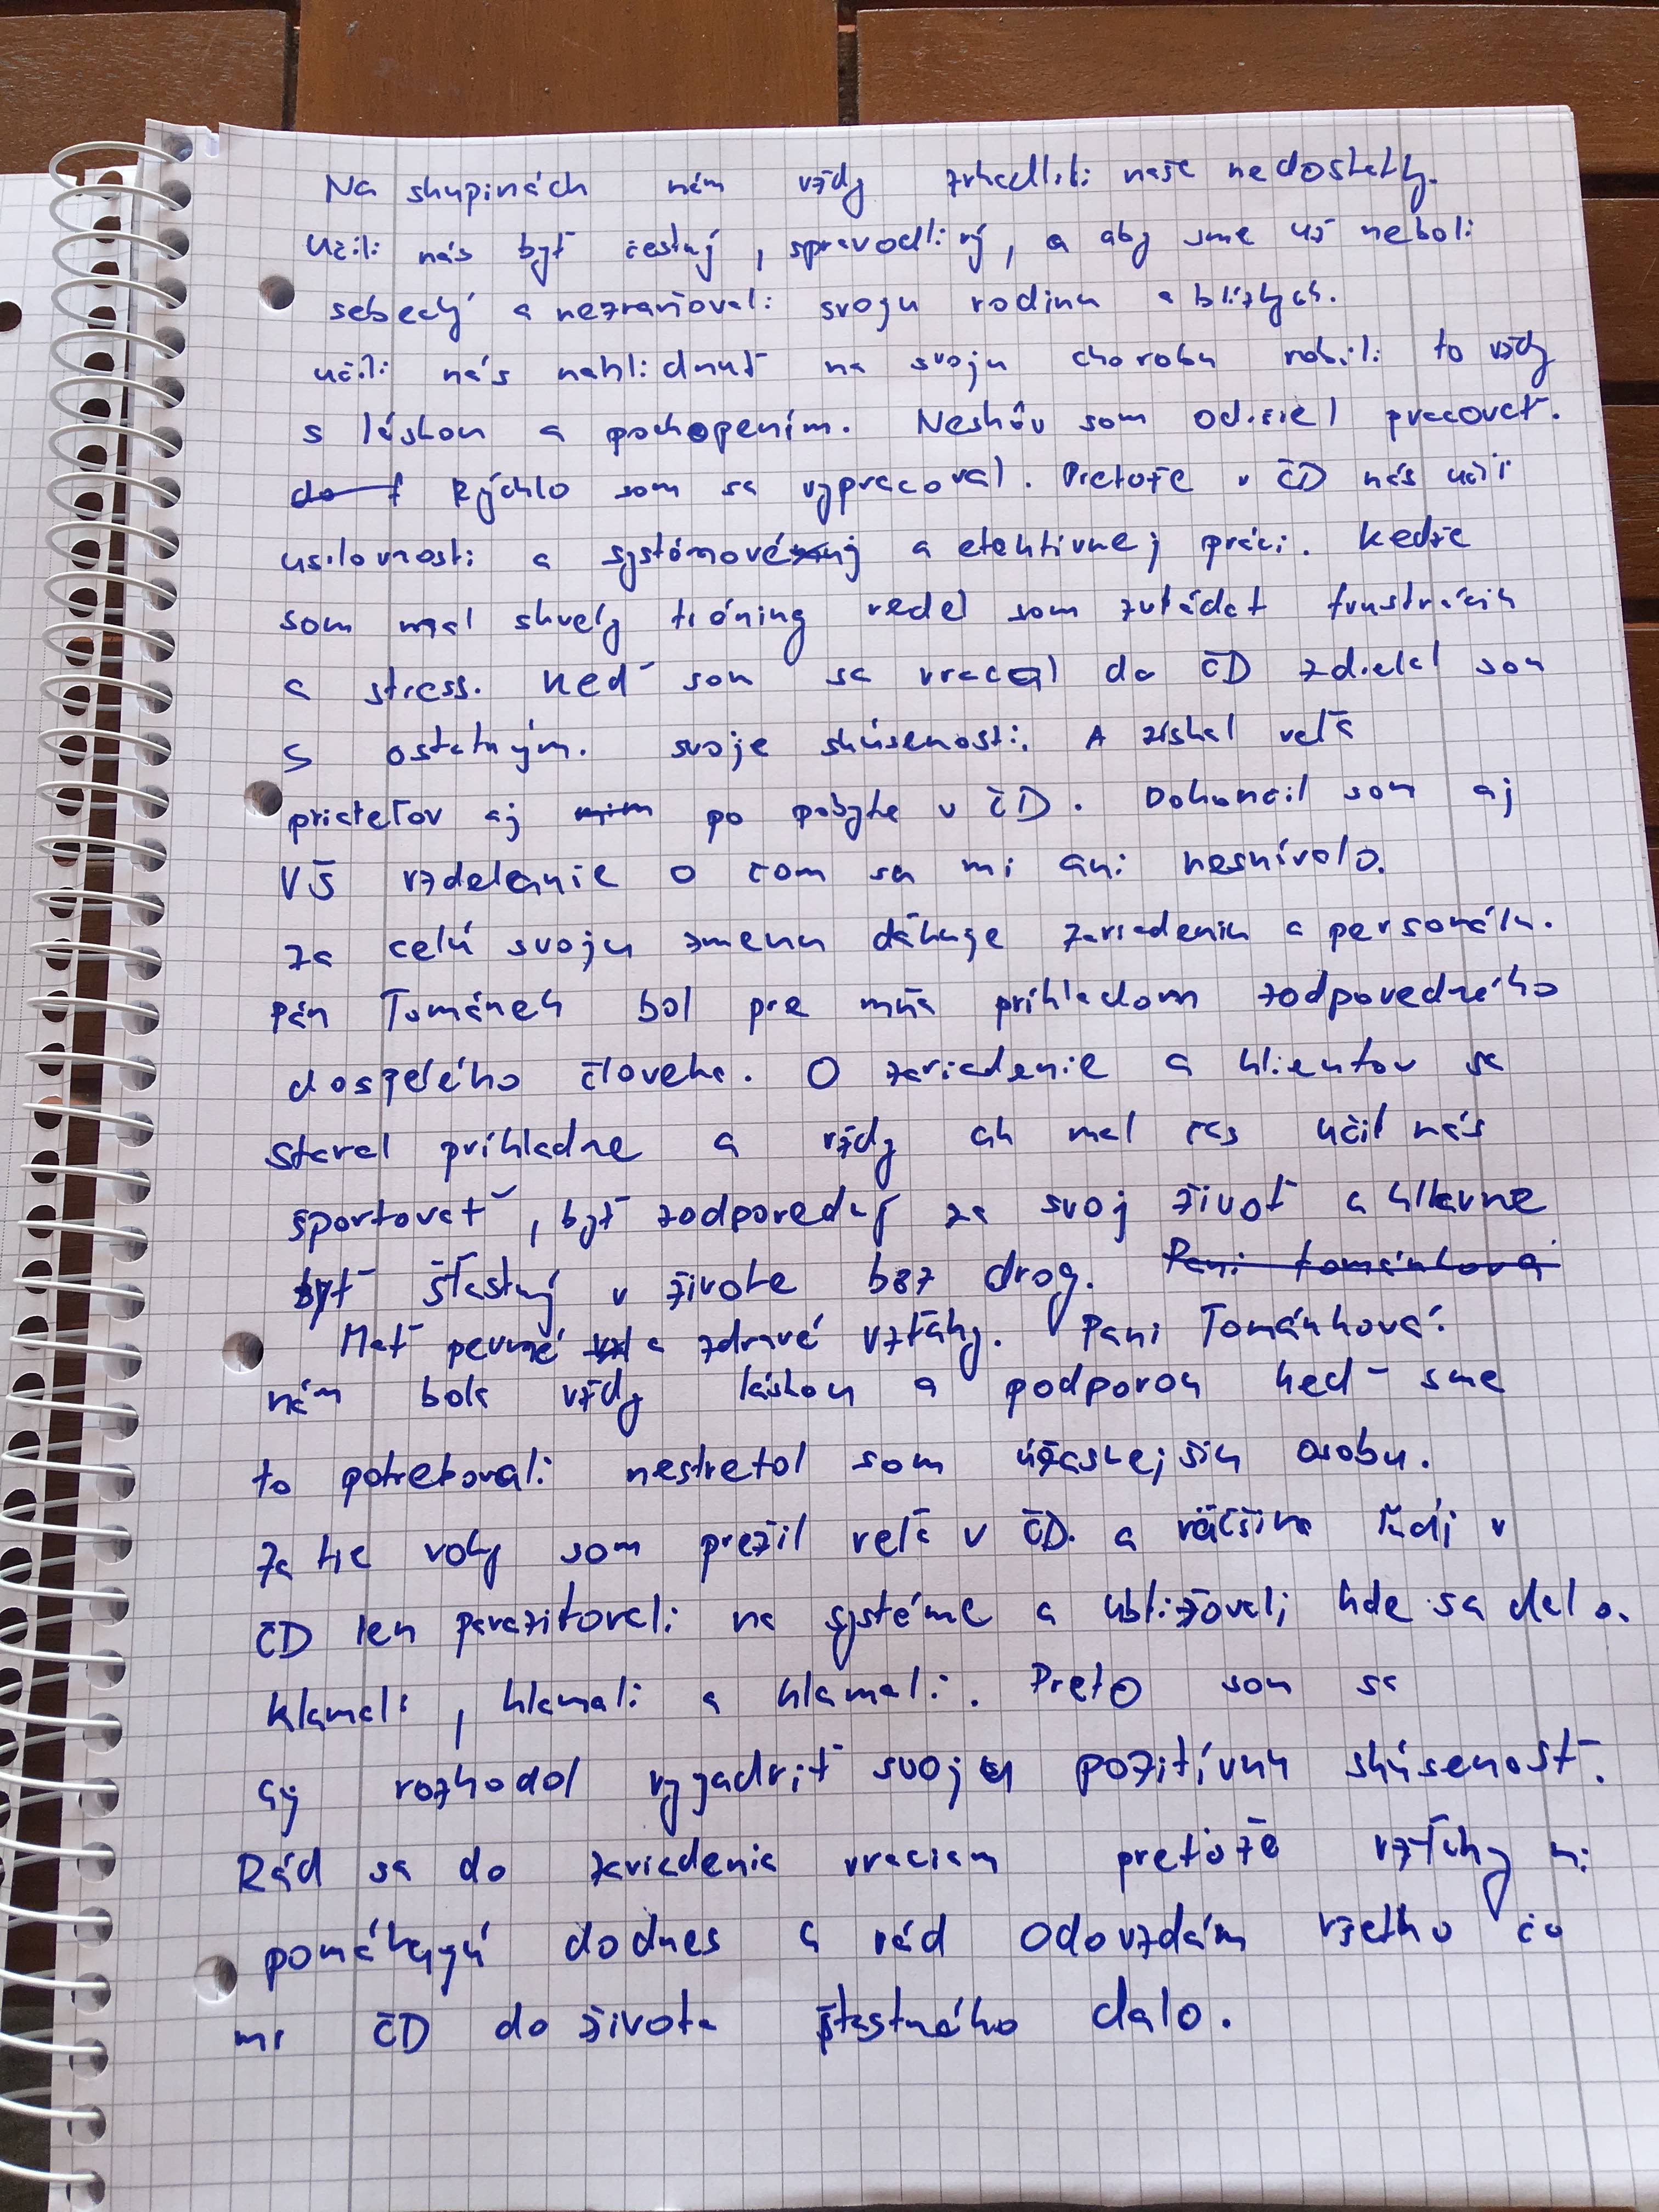 Na skupinách nám vždy zrkadlili naše nedostatky.
učili nás byť čestný, spravodlivý, a aby sme už neboli
sebecký a nezraňovali svoju rodinu a blízkych.
učili nás nahliadnuť na svoju chorobu robili to vždy
s láskou a pochopením. Neskôv som odišiel pracovať.
Rýchlo som sa vypracoval. Pretože v ČD nás učili
usilovnosti a systémovéj a efektívnej práci. Kedže
som mal skvely tréning vedel som zvládat frustráciu
a stress. Keď som sa vracal do ČD zdielal som
s ostatným. svoje skúsenosti. A získal veľa
priateľov aj po pobyte v ČD. Dokončil som aj
VŠ vzdelanie o čom sa mi ani nesnívalo.
za celú svoju zmenu ďakuje zariadeniu a personálu.
Pán Tománek bol pre mňa príkladom zodpovedného
dospelého človeka. O zariadenie a klientov sa
staral príkladne a vždy ak mal čas učil nás
športovať, byť zodpovedný za svoj život a hlavne
byť šťastný v živote bez drog. Pani Tománková
Mať pevné a zdravé vzťahy. Pani Tománková:
nám bola vždy láskou a podporou keď sme
to potrebovali nestretol som úžasnejšiu osobu.
Za tie roky som prežil veľa v ČD. a väčšina ľudí v
ČD len parazitovali na systéme a ubližovali kde sa dalo.
Klamali, klamali a klamali. Preto som sa
aj rozhodol vyjadriť svoju pozitívnu skúsenosť.
Rád sa do zariadenia vraciam pretože vzťahy mi
pomáhajú dodnes a rád odovzdám všetko čo
mi ČD do života šťastného dalo.